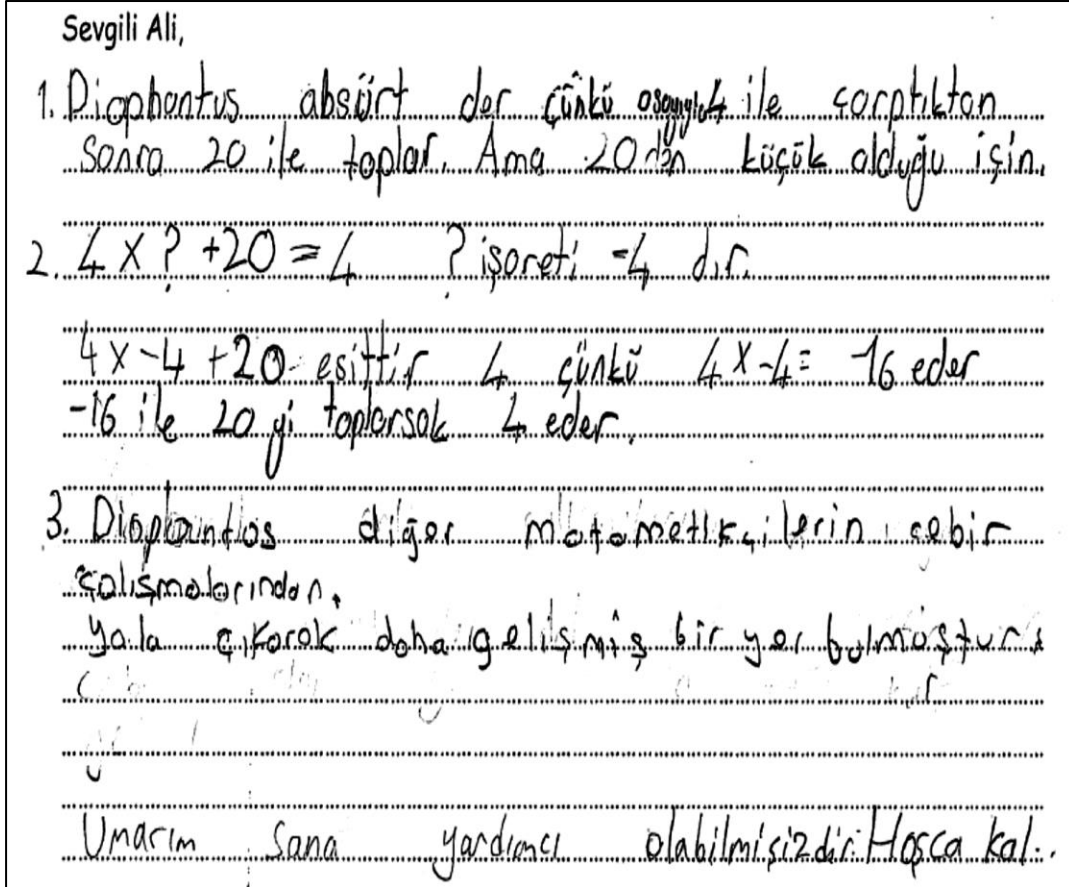 Sevgili Ali,
1. Diophontus absürt der çünkü o sayıyla 4 ile çarptıktan
sonra 20 ile toplar. Ama 20 dan küçük olduğu için.
2. 4 x ? +20 = 4 ? işareti -4 dır.
4 x -4 +20 esittir 4 çünkü 4 x -4 = -16 eder
-16 ile 20 yi toplarsak 4 eder.
3. diğer cebir
çalışmalarından,
yola çıkarak daha gelişmiş bir yer bulmuştur.
Umarım Sana yardımcı olabilmişizdir. Hoşca kal.